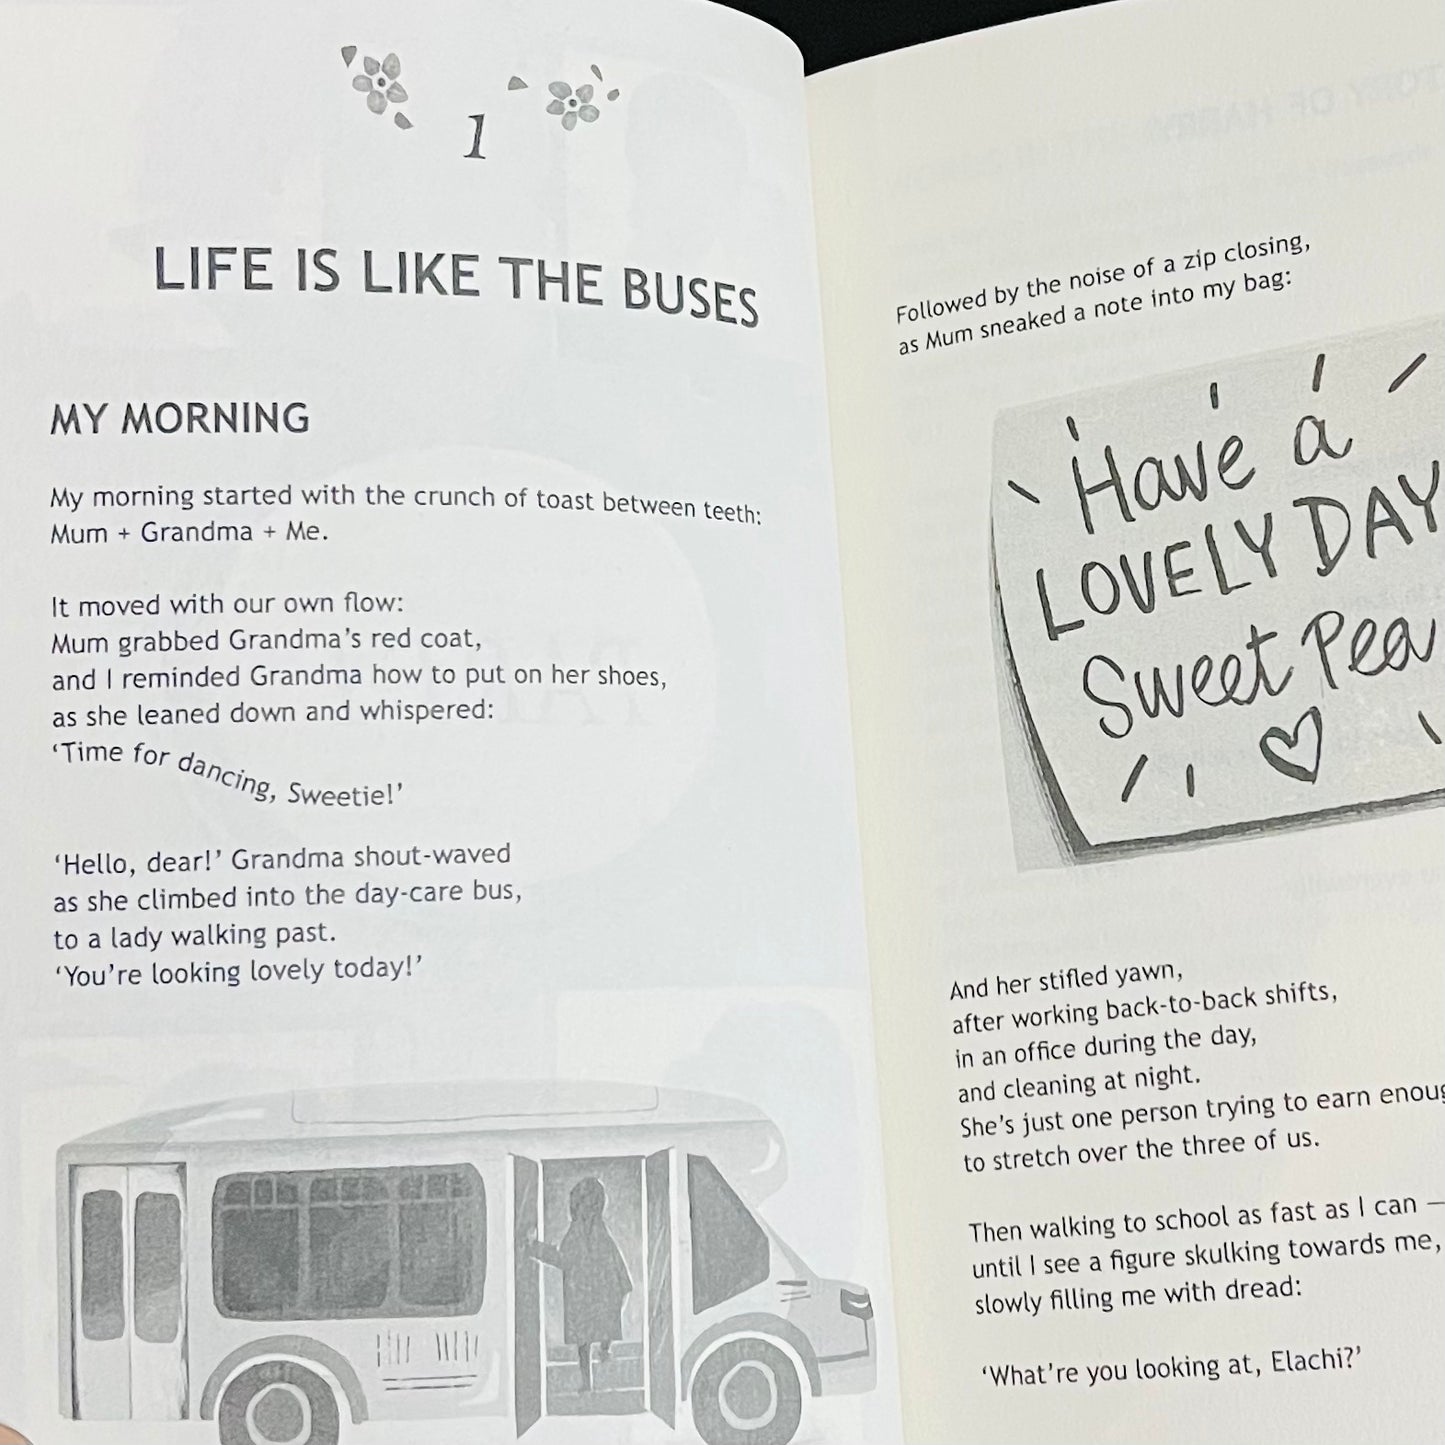 1
LIFE IS LIKE THE BUSES
MY MORNING
My morning started with the crunch of toast between teeth:
Mum + Grandma + Me.
It moved with our own flow:
Mum grabbed Grandma’s red coat,
and I reminded Grandma how to put on her shoes,
as she leaned down and whispered:
‘Time for dancing, Sweetie!’
‘Hello, dear!’ Grandma shout-waved
as she climbed into the day-care bus,
to a lady walking past.
‘You’re looking lovely today!’
Followed by the noise of a zip closing,
as Mum sneaked a note into my bag:
Have a
LOVELY DAY
Sweet Pea
And her stifled yawn,
after working back-to-back shifts,
in an office during the day,
and cleaning at night.
She’s just one person trying to earn
to stretch over the three of us.
Then walking to school as fast as I can –
until I see a figure skulking towards me,
slowly filling me with dread:
‘What’re you looking at, Elachi?’